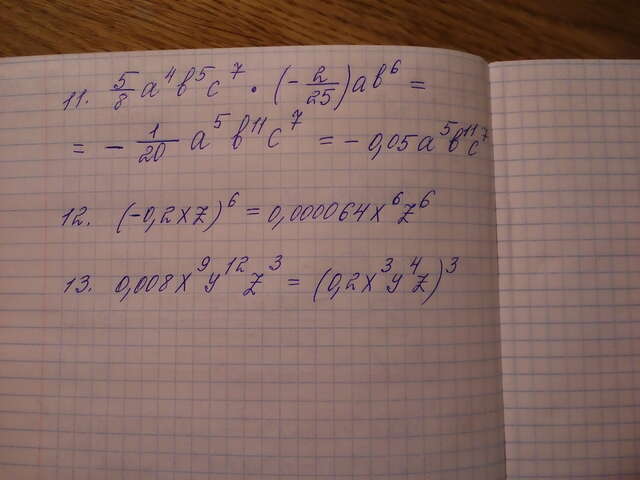 11. 5/8 a⁴в⁵с⁷ · (- 2/25)ав⁶ =
= - 1/20 a⁵в¹¹с⁷ = - 0,05a⁵в¹¹с⁷
12. (-0,2xz)⁶ = 0,000064x⁶z⁶
13. 0,008x⁹y¹²z³ = (0,2x³y⁴z)³